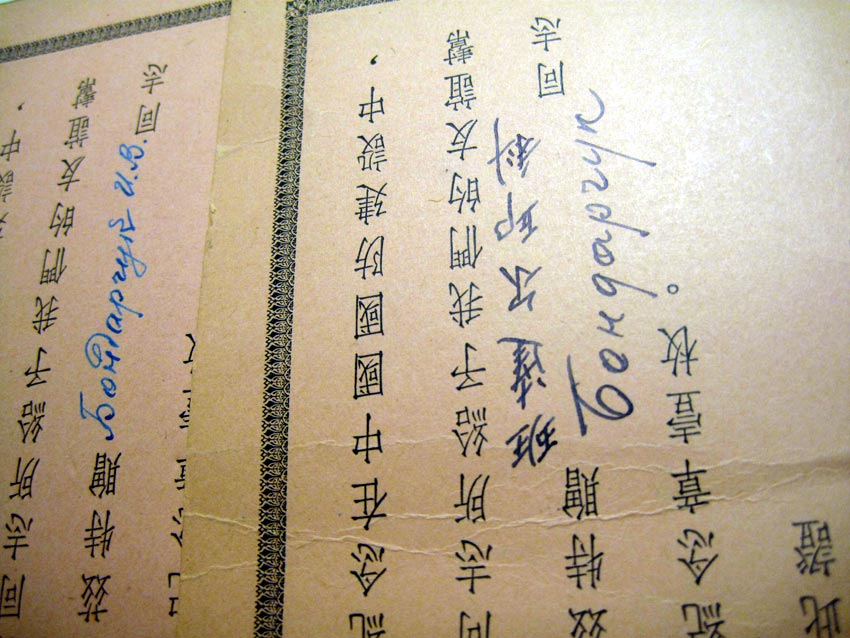 設中，
同志所給予我們的友誼幫
茲特贈 Бондарчук И.В. 同志
紀念在中國國防建設中，
同志所給予我們的友誼幫
班達尔
茲特贈 Бондарчук 同志
紀念章壹枚。
此證